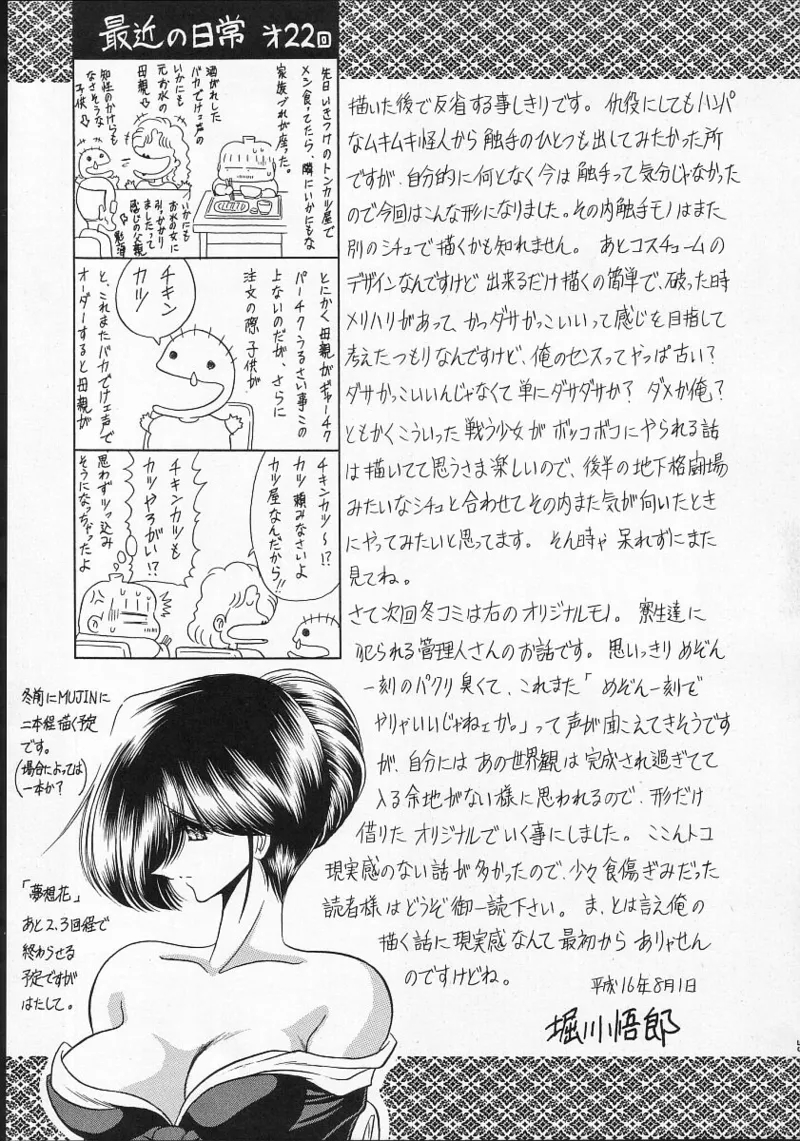 最近の日常 才22回
先日いきつけのトンカツ屋で
メシ食ってたら、隣にいかにもな
家族づれが座った。
酒がれした
バカでけェ声の
いかにも
元お水の
母親⇨
知性のかけらも
なさそうな
子供⇨
いかにも
お水の女に
引っかかり
ましたって
感じの父親
とにかく母親がギャーチク
パーチクうるさい事この
上ないのだが、さらに
注文の際子供が
チキン
カツ
と、これまたバカでけェ声で
オーダーすると母親が
チキンカツ〜!?
カツ頼みなさいよ
カツ屋なんだから!!
チキンカツも
カツやろがい!?
思わずツッ込み
そうになっちゃったよ
描いた後で反省する事しきりです。 仇役にしてもハンパ
なムキムキ怪人から触手のひとつも出してみたかった所
ですが、自分的に何となく今は触手って気分じゃなかった
ので今回はこんな形になりました。その内触手モノはまた
別のシチュで描くかも知れません。 あとコスチュームの
デザインなんですけど出来るだけ描くの簡単で、破った時
メリハリがあって、かっダサかっこいいって感じを目指して
考えたつもりなんですけど、俺のセンスってやっぱ古い?
ダサかっこいいんじゃなくて単にダサダサか? ダメか俺?
ともかくこういった戦う少女がボッコボコにやられる話
は描いてて思うさま楽しいので、後半の地下格闘場
みたいなシチュと合わせてその内また気が向いたとき
にやってみたいと思ってます。 そん時ゃ呆れずにまた
見てね。
さて次回冬コミは右のオリジナルモノ。 寮生達に
犯られる管理人さんのお話です。 思いっきりめぞん
一刻のパクリ臭くて、これまた「めぞん一刻で
やりゃいいじゃねェか。」って声が聞こえてきそうです
が、自分にはあの世界観は完成され過ぎてて
入る余地がない様に思われるので、形だけ
借りたオリジナルでいく事にしました。 ここんトコ
現実感のない話が多かったので、少々食傷ぎみだった
読者様はどうぞ御一読下さい。 ま、とは言え俺の
描く話に現実感なんて最初からありゃせん
のですけどね。
平成16年8月1日
堀川悟郎
冬前にMUJINに
二本程描く予定
です。
(場合によっては
一本か?)
「夢想花」
あと2、3回程で
終わらせる
予定ですが
はたして。